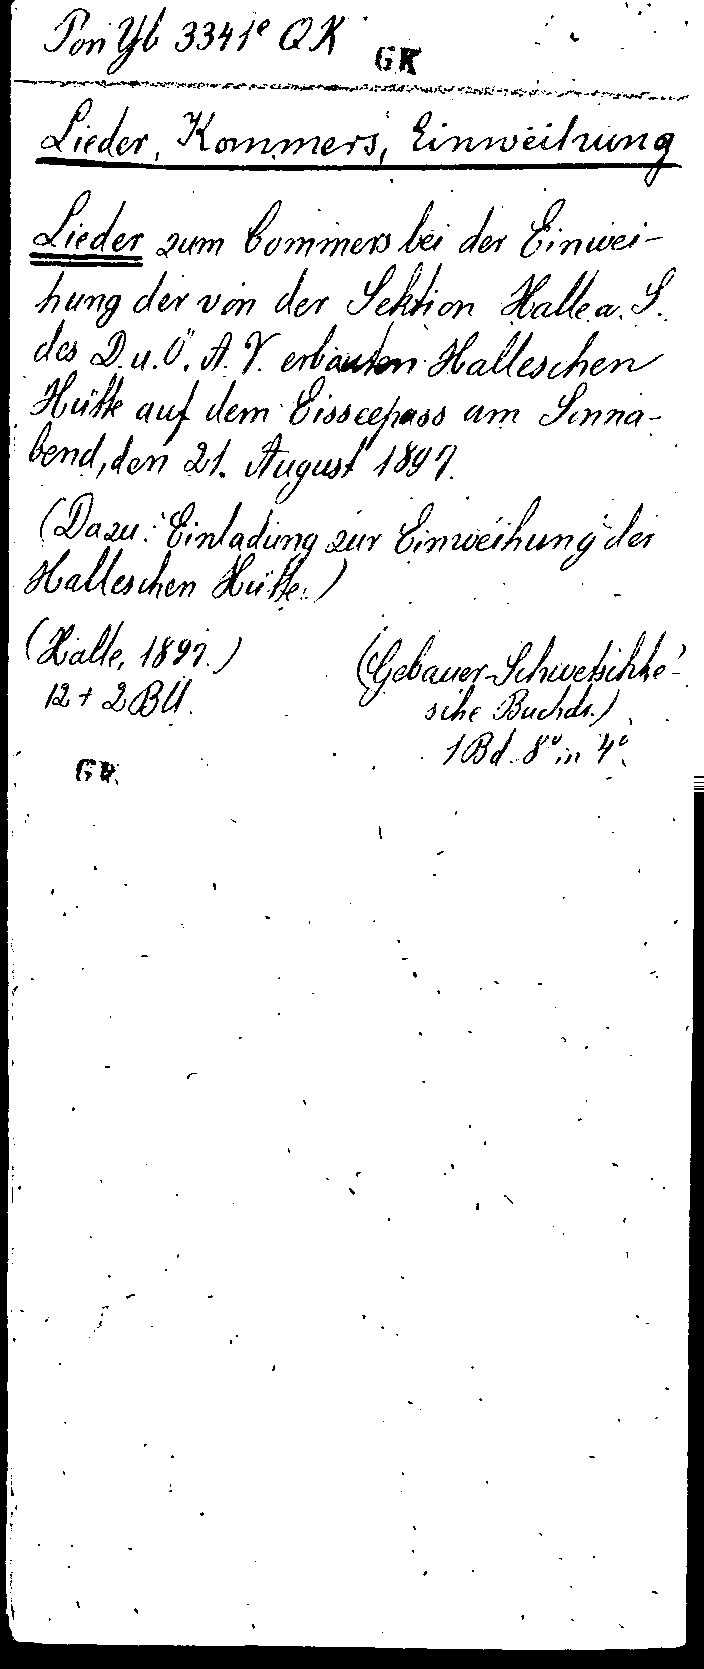 Pon Yb 3341e QK
GK
Lieder, Kommers, Einweihung
Lieder zum Commers bei der Einwei-
hung der von der Sektion Halle a. S.
des D. u. Ö. A. V. erbauten Halleschen
Hütte auf dem Eisseepass am Sonna-
bend, den 21. August 1897.
(Dazu: Einladung zur Einweihung der
Halleschen Hütte.)
(Halle, 1897.) (Gebauer-Schwetschke'
12 + 2 Bll. sche Buchdr.)
1 Bd. 8° in 4°.
GK